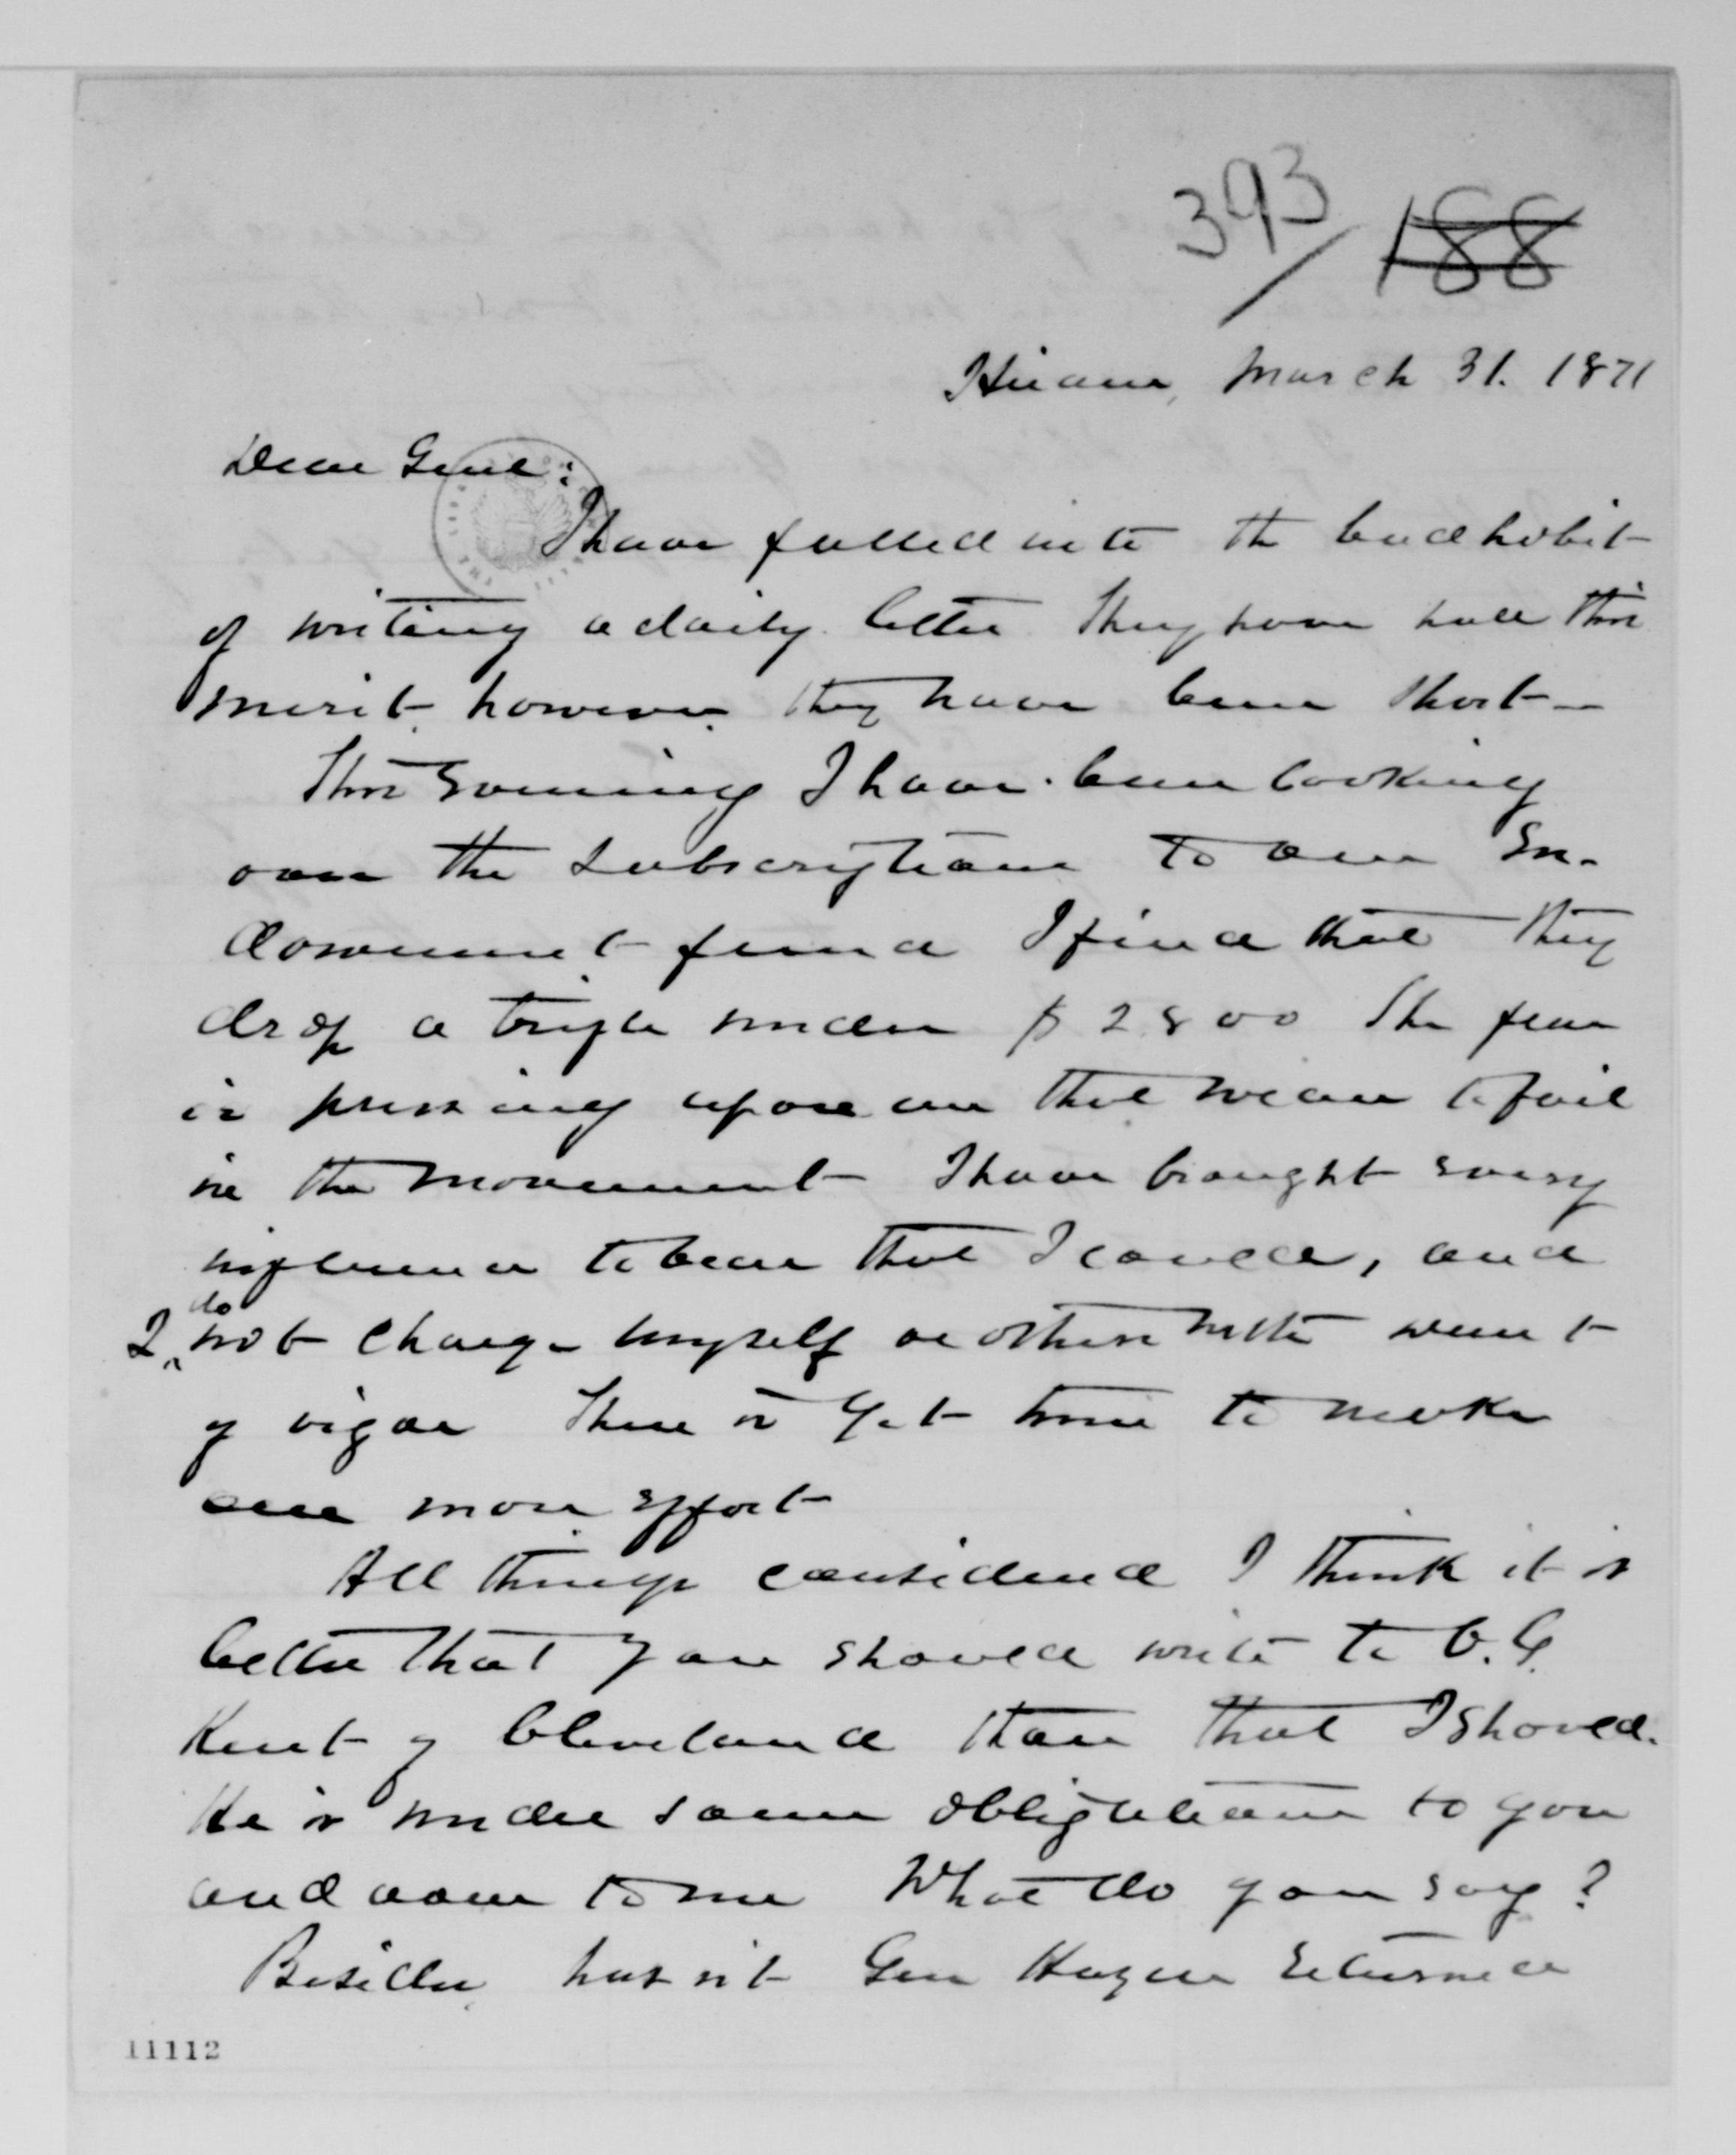 393
188
Hiram, March 31. 1871
Dear Genl:
I have falled into the bad habit
of writing a daily letter They have had this
merit, however, they have been short—
This Evening I have been looking
over the subscriptions to our En-
dowment fund I find that they
drop a trifle under $2800 The fear
is pressing upon me that we are to fail
in the movement I have brought every
influence to bear that I could, and
I do not charge myself or others with want
of vigor There is yet time to make
one more effort
All things considered I think it is
better that you should write to
Kent of Cleveland than that I should.
He is under some obligations to you
and none to me What do you say?
Besides, has n't Gen Hazen returned
11112